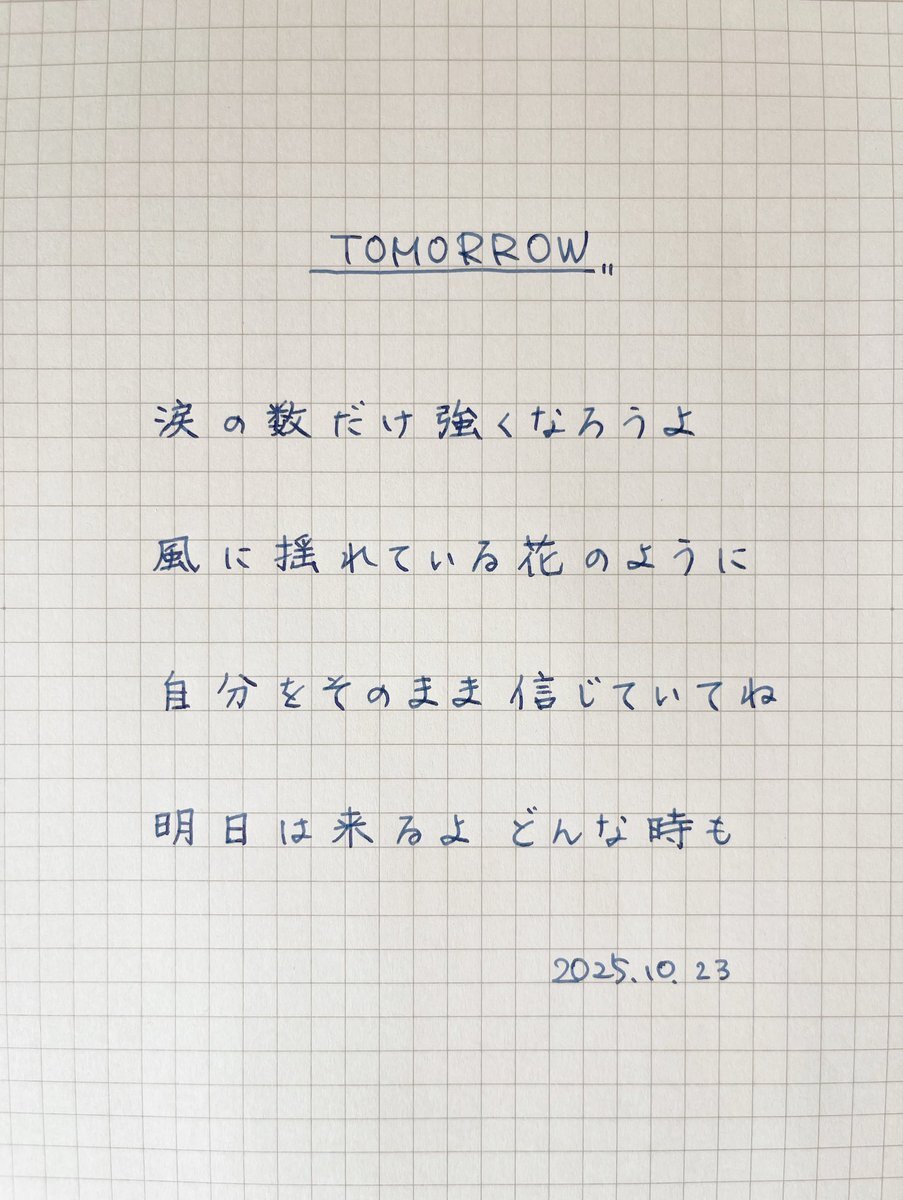 TOMORROW
涙の数だけ強くなろうよ
風に揺れている花のように
自分をそのまま信じていてね
明日は来るよ どんな時も
2025.10.23